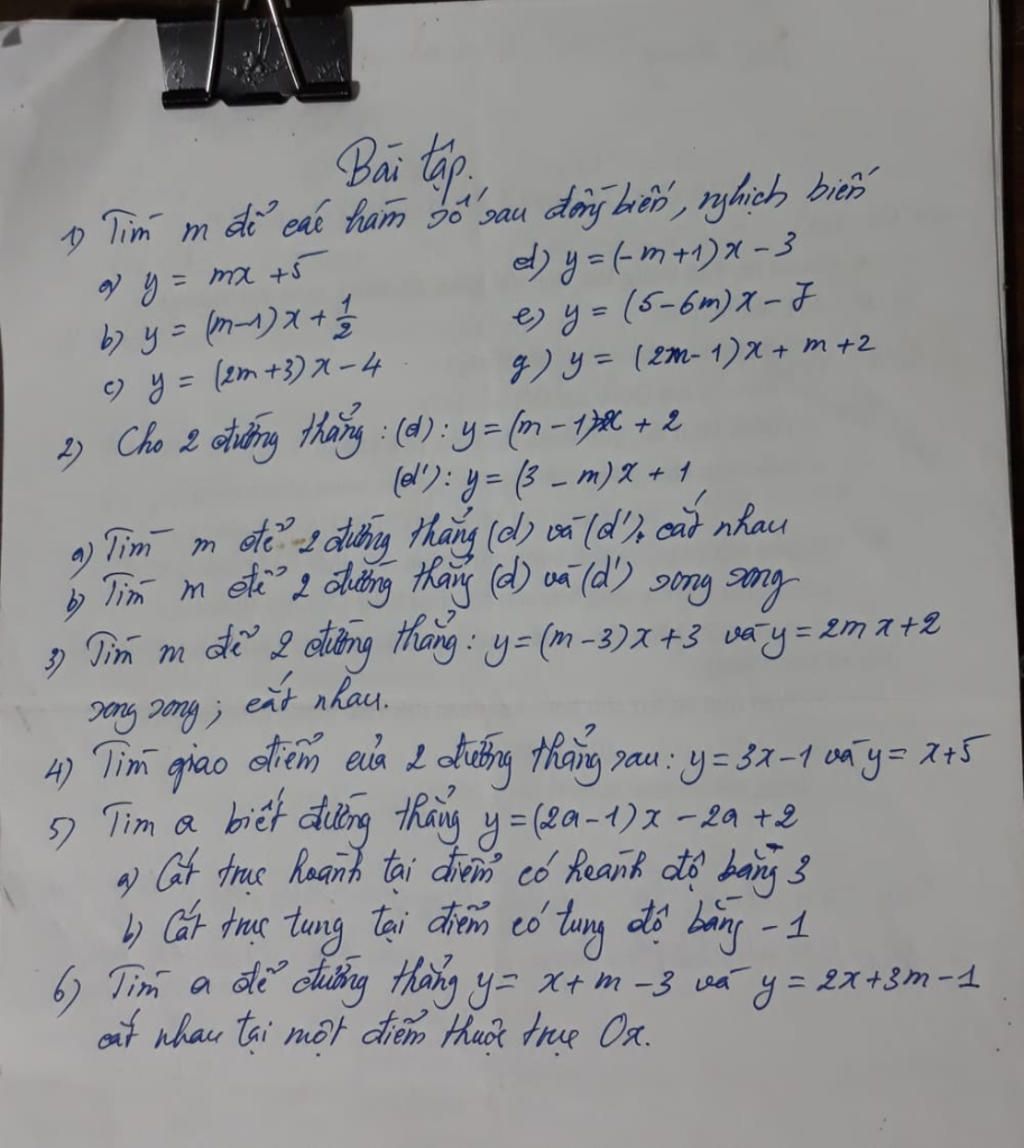 Bài tập.
1) Tìm m để các hàm số sau đồng biến, nghịch biến
a) y = mx + 5
d) y = (-m+1)x - 3
b) y = (m-1)x + 1/2
e) y = (5-6m)x - 7
c) y = (2m+3)x - 4
g) y = (2m-1)x + m + 2
2) Cho 2 đường thẳng : (d) : y = (m - 1)x + 2
(d') : y = (3 - m)x + 1
a) Tìm m để 2 đường thẳng (d) và (d') cắt nhau
b) Tìm m để 2 đường thẳng (d) và (d') song song
3) Tìm m để 2 đường thẳng : y = (m-3)x + 3 và y = 2mx + 2
song song ; cắt nhau.
4) Tìm giao điểm của 2 đường thẳng sau : y = 3x - 1 và y = x + 5
5) Tìm a biết đường thẳng y = (2a-1)x - 2a + 2
a) Cắt trục hoành tại điểm có hoành độ bằng 3
b) Cắt trục tung tại điểm có tung độ bằng - 1
6) Tìm a để đường thẳng y = x + m - 3 và y = 2x + 3m - 1
cắt nhau tại một điểm thuộc trục Ox.